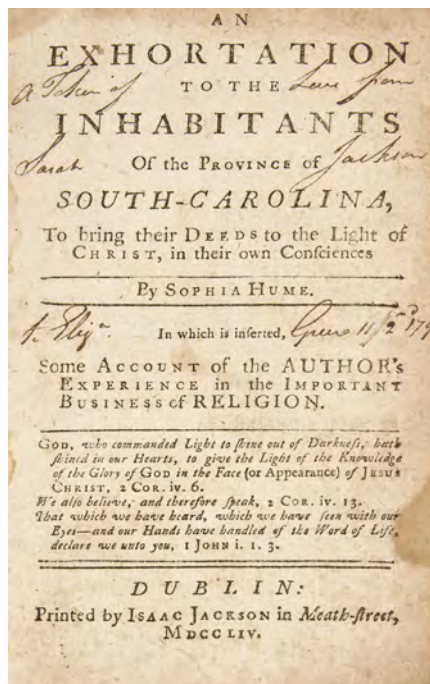 AN
EXHORTATION
A Token of TO THE Love from
INHABITANTS
Sarah Of the PROVINCE of Jackson
SOUTH-CAROLINA,
To bring their DEEDS to the Light of
CHRIST, in their own Conſciences
By SOPHIA HUME.
to Eliz.ª In which is inſerted, Greer
Some ACCOUNT of the AUTHOR's
EXPERIENCE in the IMPORTANT
BUSINESS of RELIGION.
GOD, who commanded Light to ſhine out of Darkneſs, hath
ſhined in our Hearts, to give the Light of the Knowledge
of the Glory of GOD in the Face (or Appearance) of JESUS
CHRIST, 2 COR. iv. 6.
We alſo believe, and therefore ſpeak, 2 COR. iv. 13.
That which we have heard, which we have ſeen with our
Eyes—and our Hands have handled of the Word of Life,
declare we unto you, 1 JOHN i. 1. 3.
DUBLIN:
Printed by ISAAC JACKSON in Meath-ſtreet,
MDCCLIV.